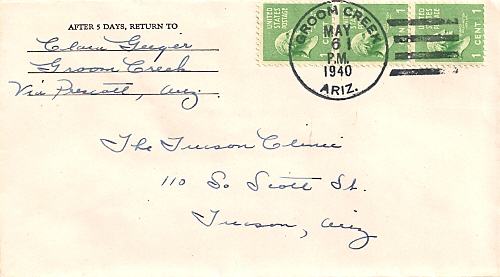 AFTER 5 DAYS, RETURN TO
Clara Geeger
Groom Creek
Via Prescott, Ariz.
UNITED STATES POSTAGE
1 CENT 1
1 CENT 1
GROOM CREEK
MAY
6
P.M.
1940
ARIZ.
The Tucson Clinic
110 So Scott St.
Tucson, Ariz